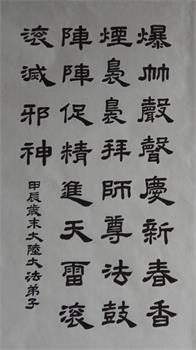 爆竹聲聲慶新春香
煙裊裊拜師尊法鼓
陣陣促精進天雷滾
滾滅邪神
甲辰歲末大陸大法弟子